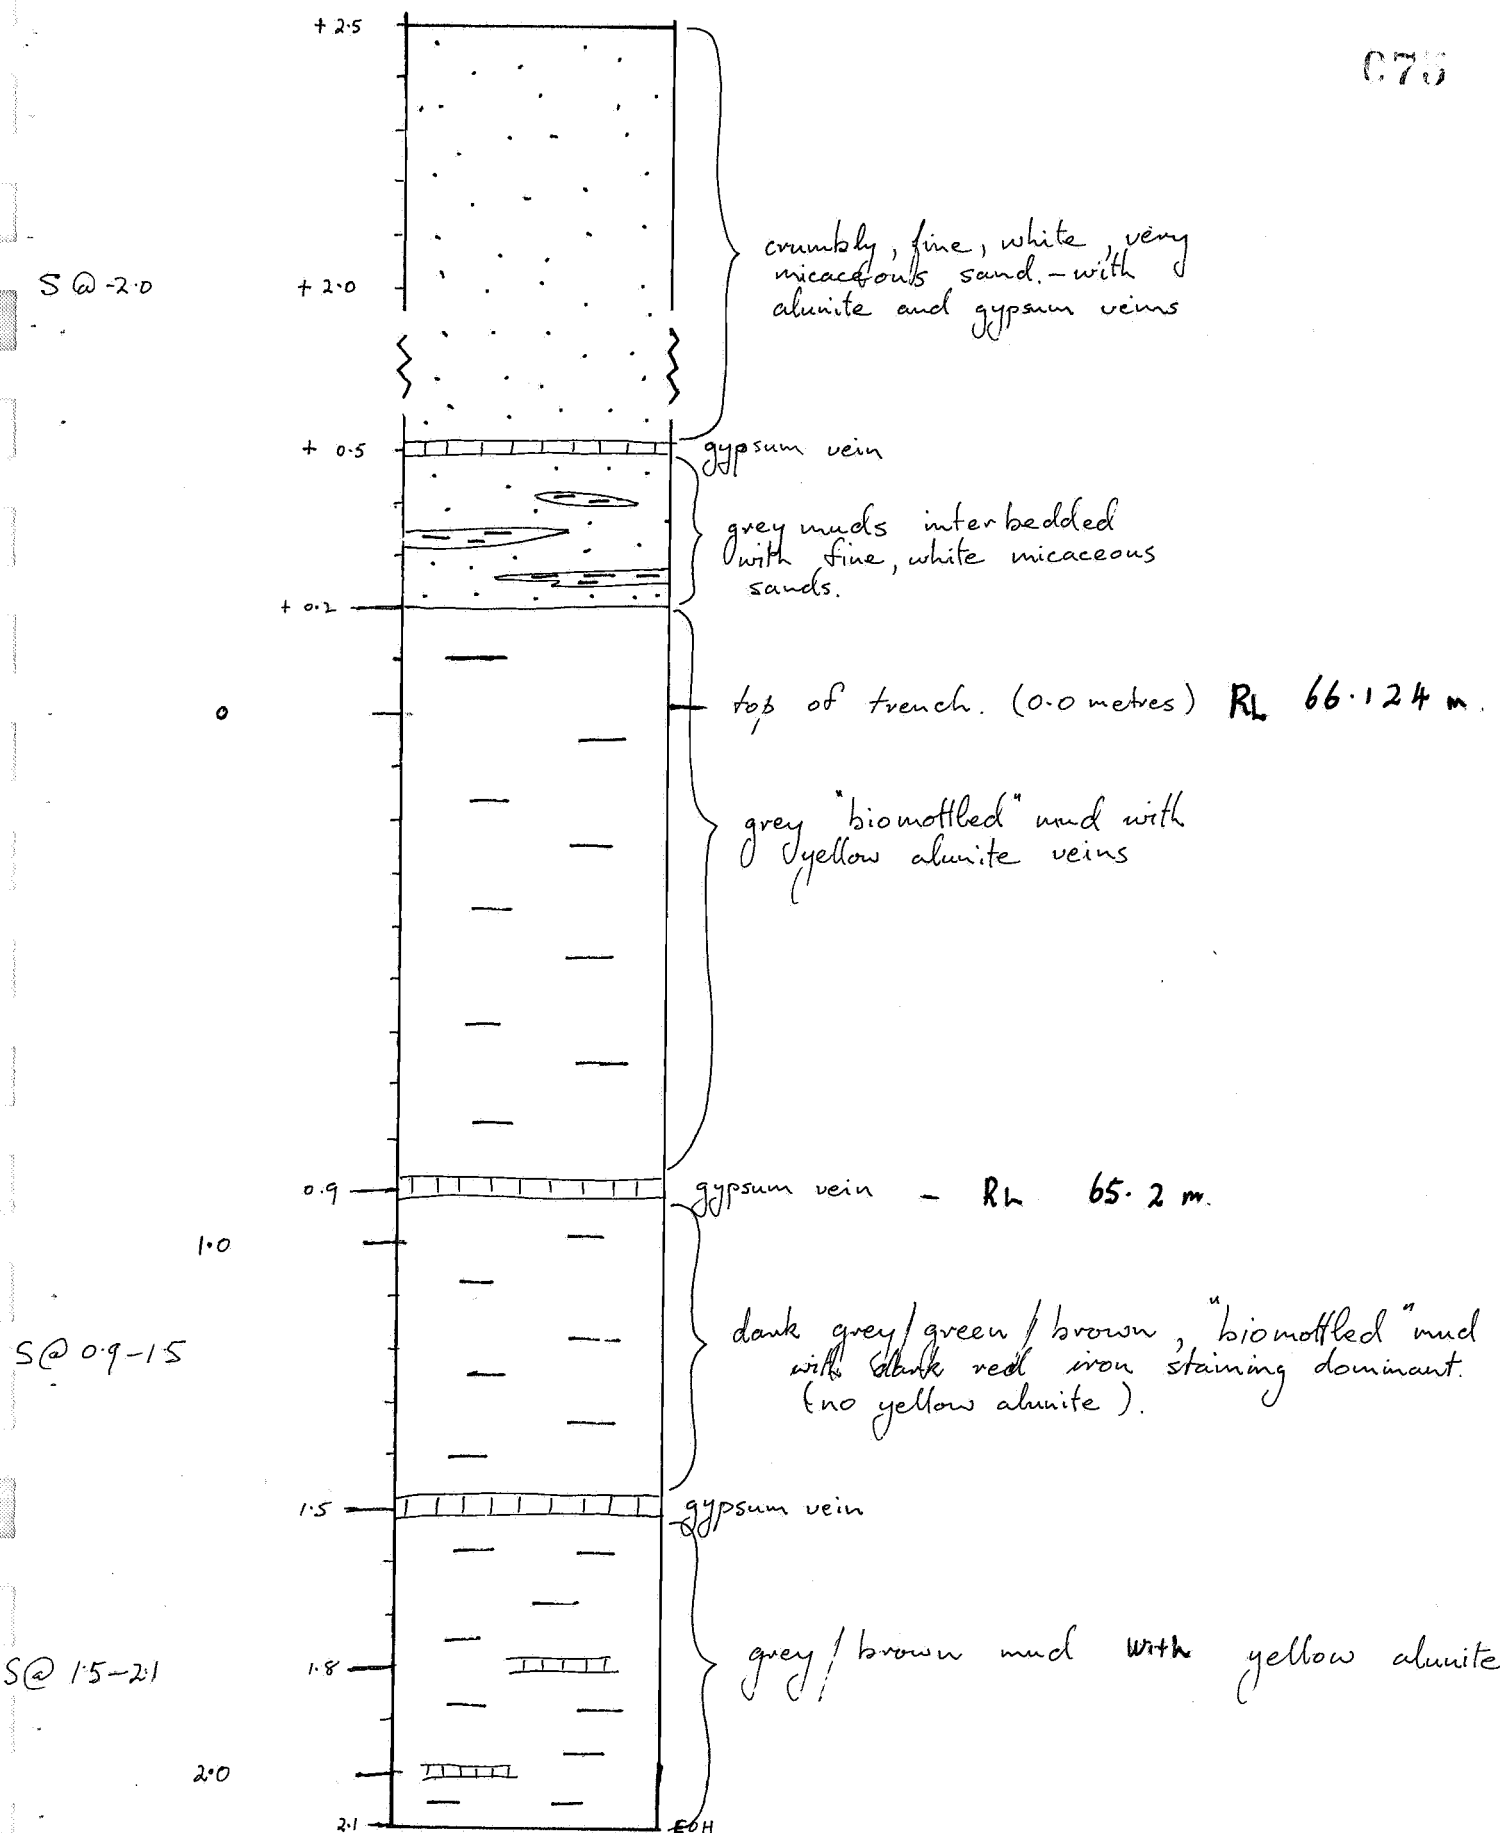 + 2.5
C75
S @ -2.0
+ 2.0
crumbly, fine, white, very
micaceous sand. - with
alunite and gypsum veins
+ 0.5
gypsum vein
grey muds interbedded
with fine, white micaceous
sands.
+ 0.2
0
top of trench. (0.0 metres) RL 66.124 m.
grey "biomottled" mud with
yellow alunite veins
0.9
gypsum vein - RL 65.2 m.
1.0
S@ 0.9-1.5
dark grey/green/brown, "biomottled" mud
with dark red iron staining dominant.
(no yellow alunite).
1.5
gypsum vein
S@ 1.5-2.1
1.8
grey/brown mud with yellow alunite
2.0
2.1
EOH